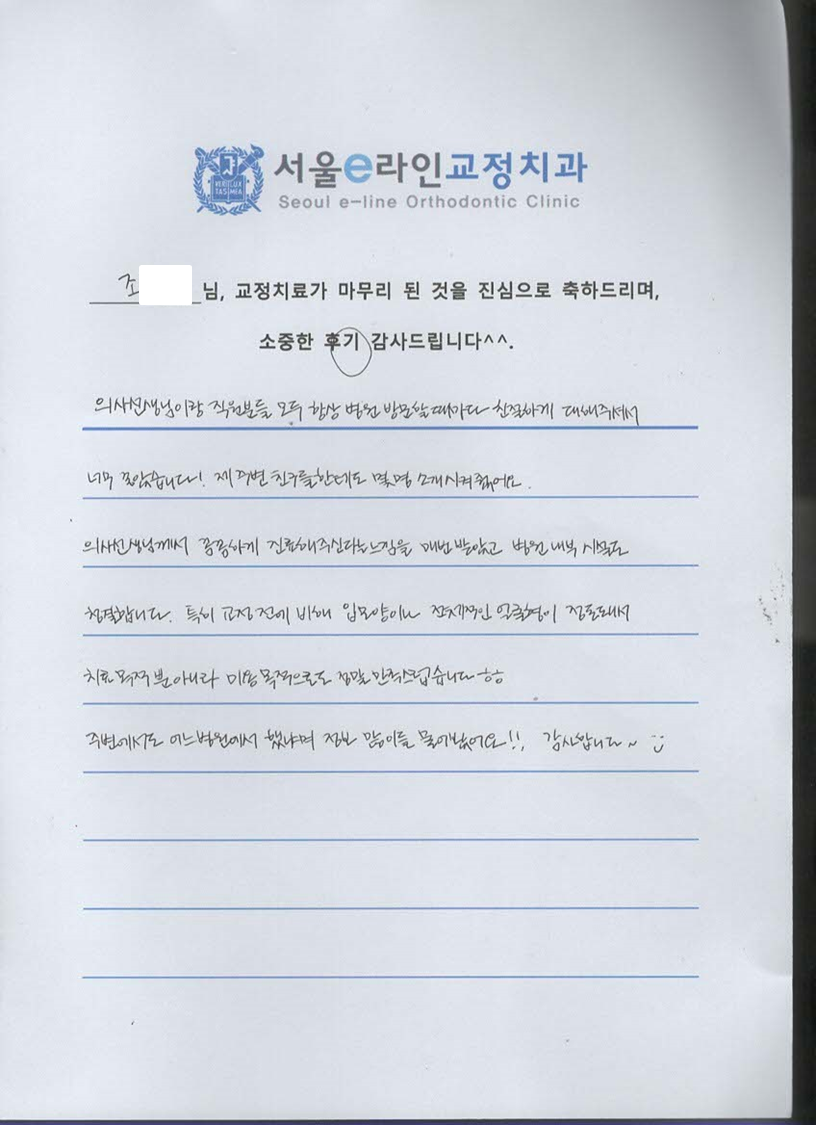 서울e라인교정치과
Seoul e-line Orthodontic Clinic
VERI LUX TAS MEA
조 님, 교정치료가 마무리 된 것을 진심으로 축하드리며,
소중한 후기 감사드립니다^^.
의사선생님이랑 직원분들 모두 항상 병원 방문할때마다 친절하게 대해주셔서
너무 좋았습니다! 제 주변 친구들한테도 몇명 소개시켜줬어요.
의사선생님께서 꼼꼼하게 진료해주신다는느낌을 매번 받았고 병원내부 시설도
청결합니다. 특히 교정 전에 비해 입모양이나 전체적인 얼굴형이 정돈돼서
치료목적 뿐아니라 미용 목적으로도 정말 만족스럽습니다 ㅎㅎ
주변에서도 어느병원에서 했냐며 정보 많이들 물어봤어요!!, 감사합니다~ :)